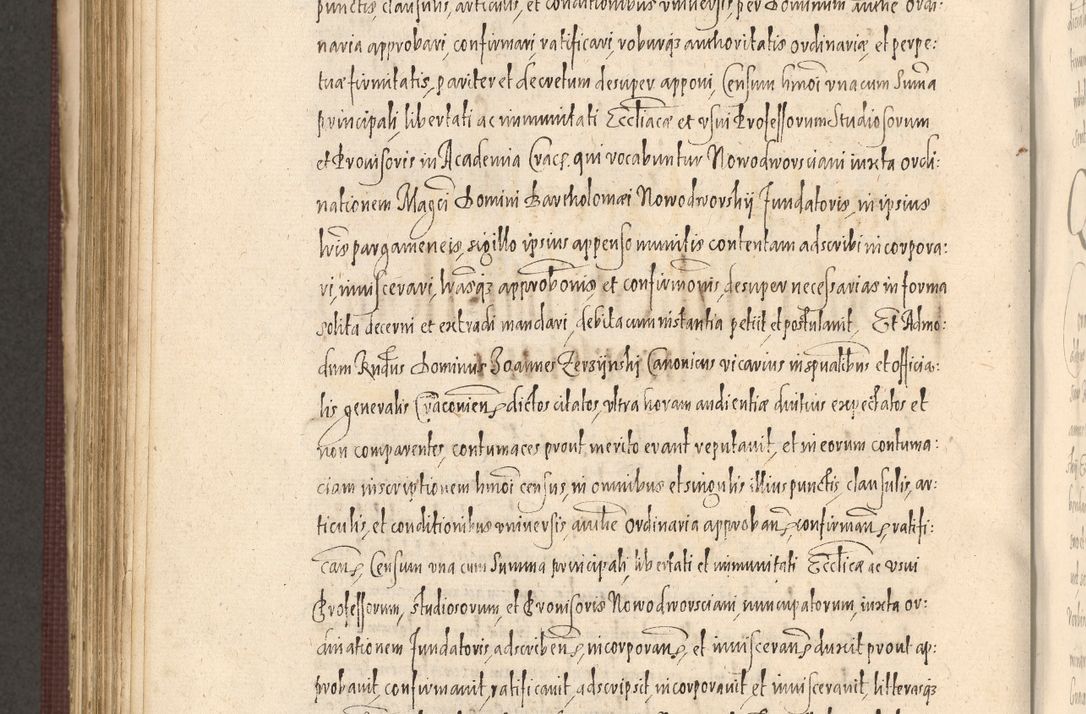 punctis, clausulis, articulis, et conditionibus vniuersis, per Dominum authe Ordi:
naria approbari, confirmari, ratificari, roburqȝ authoritatis ordinariæ, et perpe:
tuæ firmitatis, pariter et decretum desuper apponi, Censum hmoi vna cum Suma
principali, libertati ac immunitati Ecclîiacæ et vsui Professorum Studiosorum
et Prouisoris in Academia Crac: qui vocabuntur Nowodworsciani iuxta Ordi:
nationem Magci Domini Bartholomæi Nowodworskij Fundatoris, in ipsius
lris pargameneis, sigillo ipsius appenso munitis contentam adscribi incorpora:
ri, inuiscerari, lrasqȝ approbonis et confirmonis, desuper necessarias in forma
solita decerni et extradi mandari, debita cum instantia petiit et postulauit, Et Admo:
dum Rndus Dominus Ioannes Zerzijnskij Canonicus vicarius in spualibus et officia:
lis generalis Cracouien, dictos citatos, vltra horam audientiæ diutius expectatos et
non comparentes, contumaces prout merito erant reputauit, et in eorum contuma:
ciam inscriptionem hmoi census, in omnibus et singulis illius punctis, clausulis, ar:
ticulis, et conditionibus vniuersis, authe Ordinaria approban, confirman, ratifi:
can, Censum vna cum Summa principali, libertati et immunitati Ecclicæ ac vsui
Professorum, Studiosorum, et Prouisoris Nowodworsciani, nuncupatorum, iuxta or:
dinationem Fundatoris, adscriben, incorporan, et inuisceran duxit prout ap:
probauit, confirmauit, ratificauit, adscripsit incorporauit et inuiscerauit, litterasqȝ